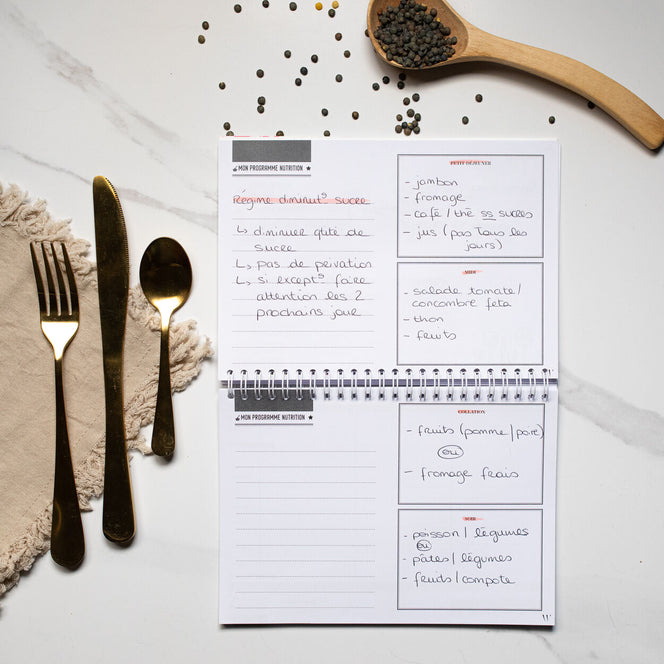 MON PROGRAMME NUTRITION
Régime diminutº sucre
↳ diminuer qtite de
sucre
↳ pas de privation
↳ si exceptº faire
attention les 2
prochains jour
PETIT DEJEUNER
- jambon
- fromage
- café / thé ss sucres
- jus (pas tous les
jours)
MIDI
- salade tomate/
concombre feta
- thon
- fruits
MON PROGRAMME NUTRITION
COLLATION
- fruits (pomme/poire)
ou
- fromage frais
SOIR
- poisson / légumes
ou
- pâtes / légumes
- fruits / compote